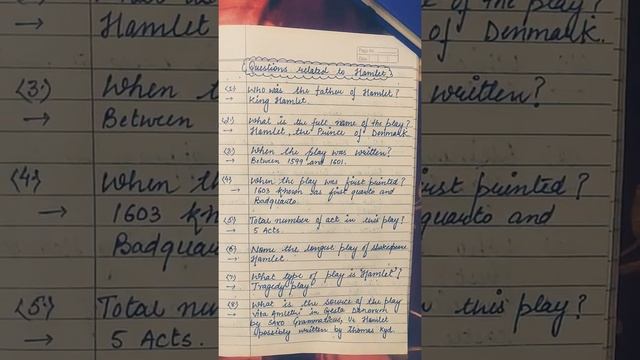 Page No.
Date
Questions related to Hamlet
(1) Who was the father of Hamlet?
→ King Hamlet.
(2) What is the full name of the play?
→ Hamlet, the Prince of Denmark
(3) When the play was written?
→ Between 1599 and 1601.
(4) When the play was first printed?
→ 1603 known was first quarto and
Badquarto.
(5) Total number of act in this play?
→ 5 Acts.
(6) Name the longest play of Shakespeare
→ Hamlet
(7) What type of play is Hamlet?
→ Tragedy play
(8) What is the source of the play
→ Vita Amlethi in Gesta Danorum
by Saxo Grammaticus, Ur Hamlet
possibly written by Thomas Kyd.
Hamlet
of the play?
of Denmark.
(3)
When
written?
→ Between
(4)
When th
first printed?
→ 1603 kn
quarto and
Badquar
(5)
Total nu
this play?
→ 5 Acts.